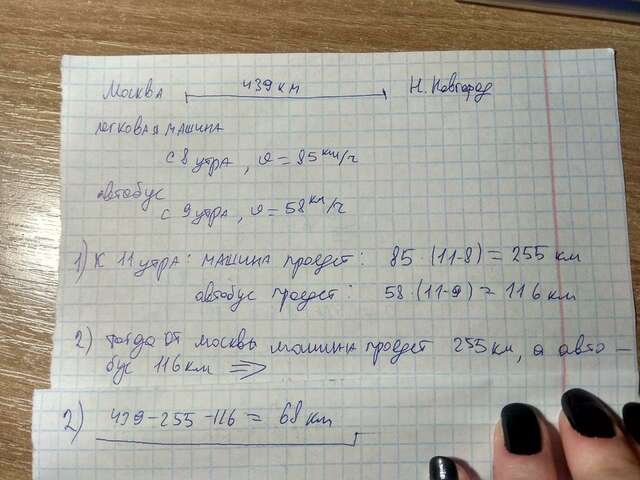 Москва 439 км Н. Новгород
легковая машина
с 8 утра, v = 85 км/ч
автобус
с 9 утра, v = 58 км/ч
1) К 11 утра: машина проедет: 85 · (11-8) = 255 км
автобус проедет: 58 · (11-9) = 116 км
2) тогда от москвы машина проедет 255 км, а авто-
бус 116 км =>
2) 439-255-116 = 68 км